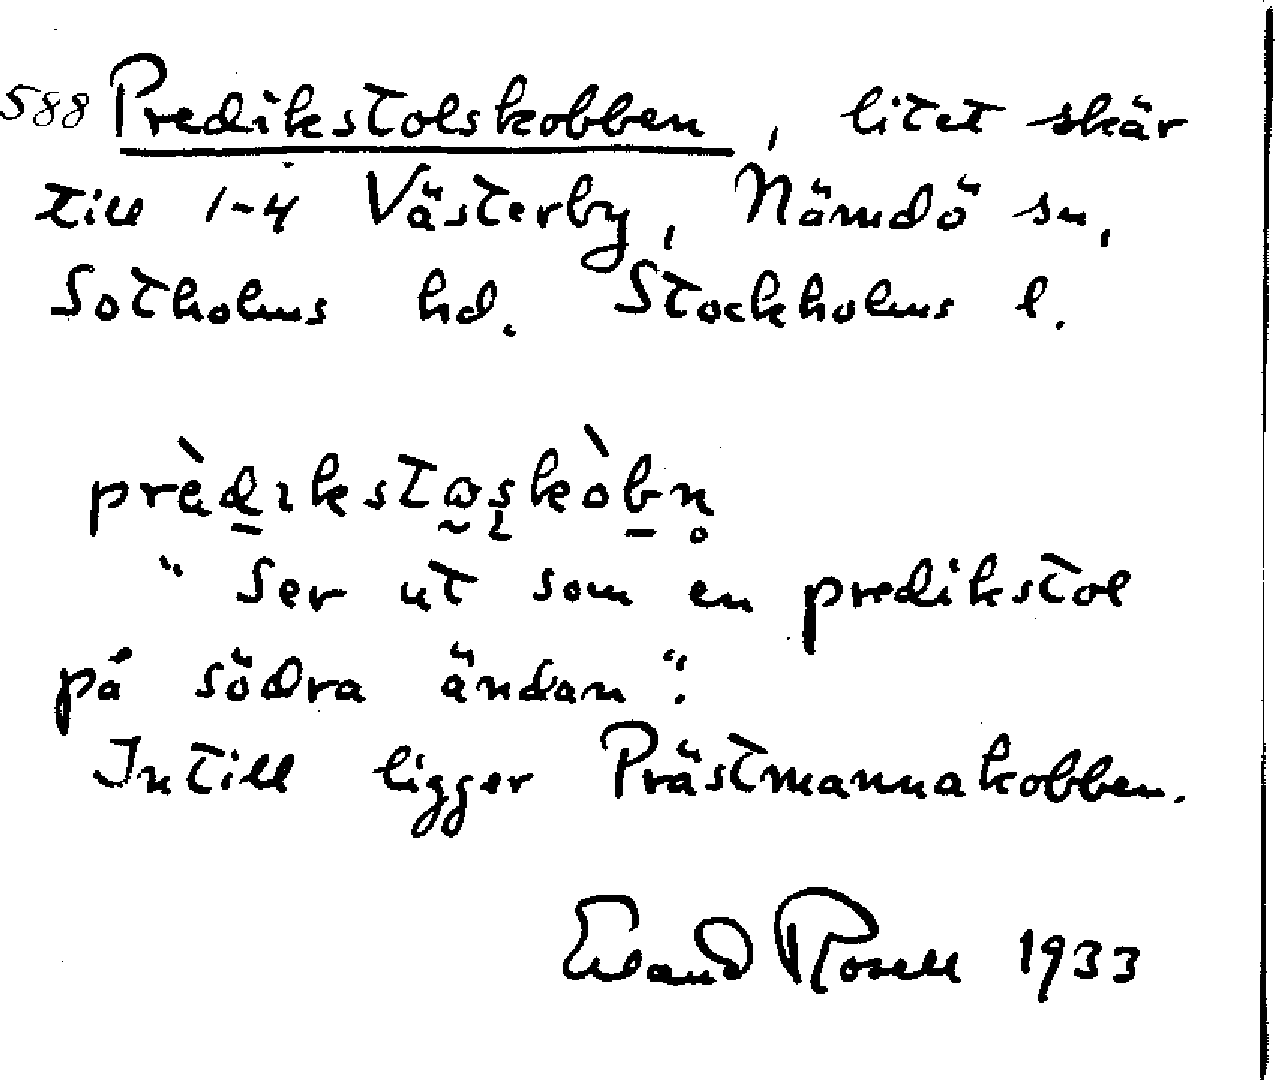 588 Predikstolskobben, litet skär
till 1-4 Västerby, Nämdö sn,
Sotholms hd. Stockholms l.
prèdıkstωskòbn̥
"Ser ut som en predikstol
på södra ändan".
Intill ligger Prästmannakobben.
Erland Rosell 1933